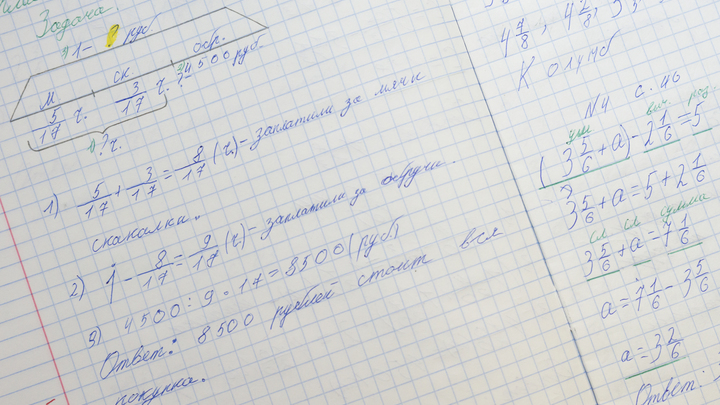 Задача.
1 - ? руб
М ск обр.
5/17 ч. 3/17 ч. ? ч. - 4500 руб.
? ч.
1) 5/17 + 3/17 = 8/17 (ч.) - заплатили за мячи
скакалки.
2) 1 - 8/17 = 9/17 (ч.) - заплатили за обручи.
3) 4500 : 9 · 17 = 8500 (руб)
Ответ: 8500 рублей стоит вся
покупка.
4 4/8,
Колумб
N4 с. 46
ум выч. раз.
(3 5/6 + a) - 2 1/6 = 5
3 5/6 + a = 5 + 2 1/6
сл сл сумма
3 5/6 + a = 7 1/6
a = 7 1/6 - 3 5/6
a = 3 2/6
Ответ: